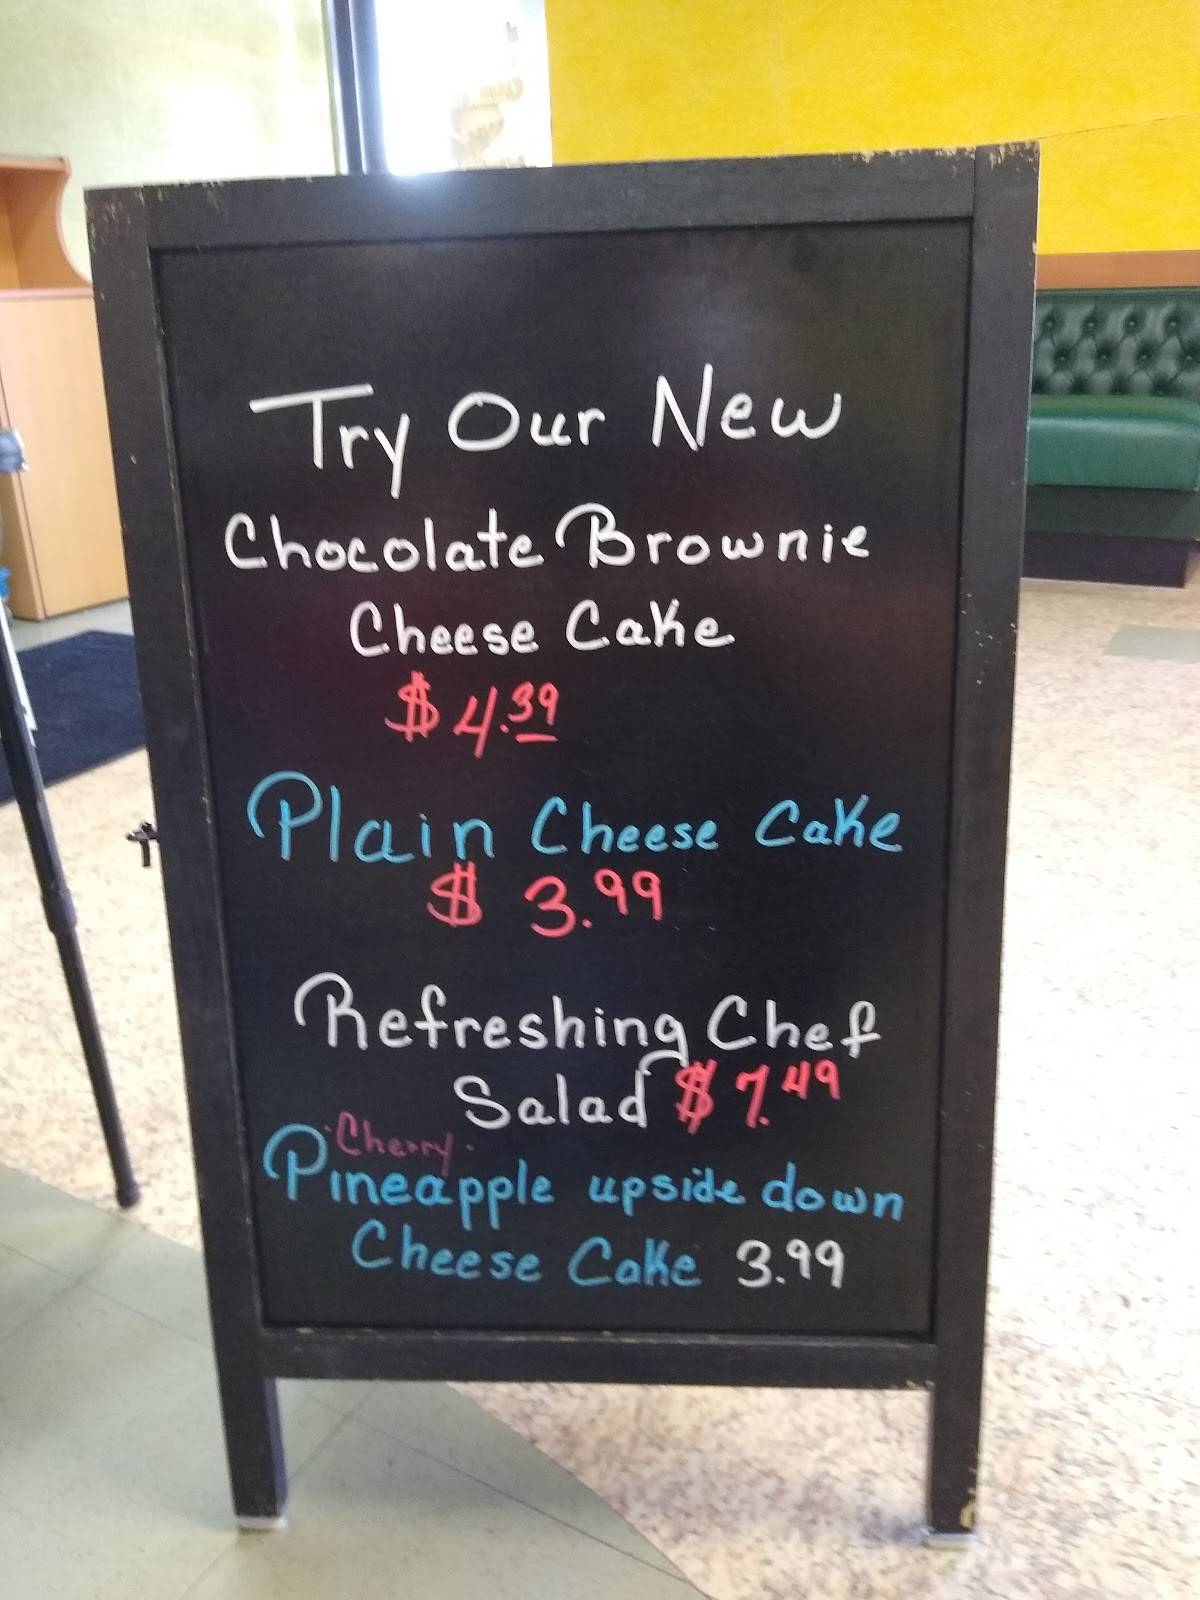 Try Our New
Chocolate Brownie
Cheese Cake
$4.39
Plain Cheese Cake
$3.99
Refreshing Chef
Salad $7.49
Cherry
Pineapple upside down
Cheese Cake 3.99